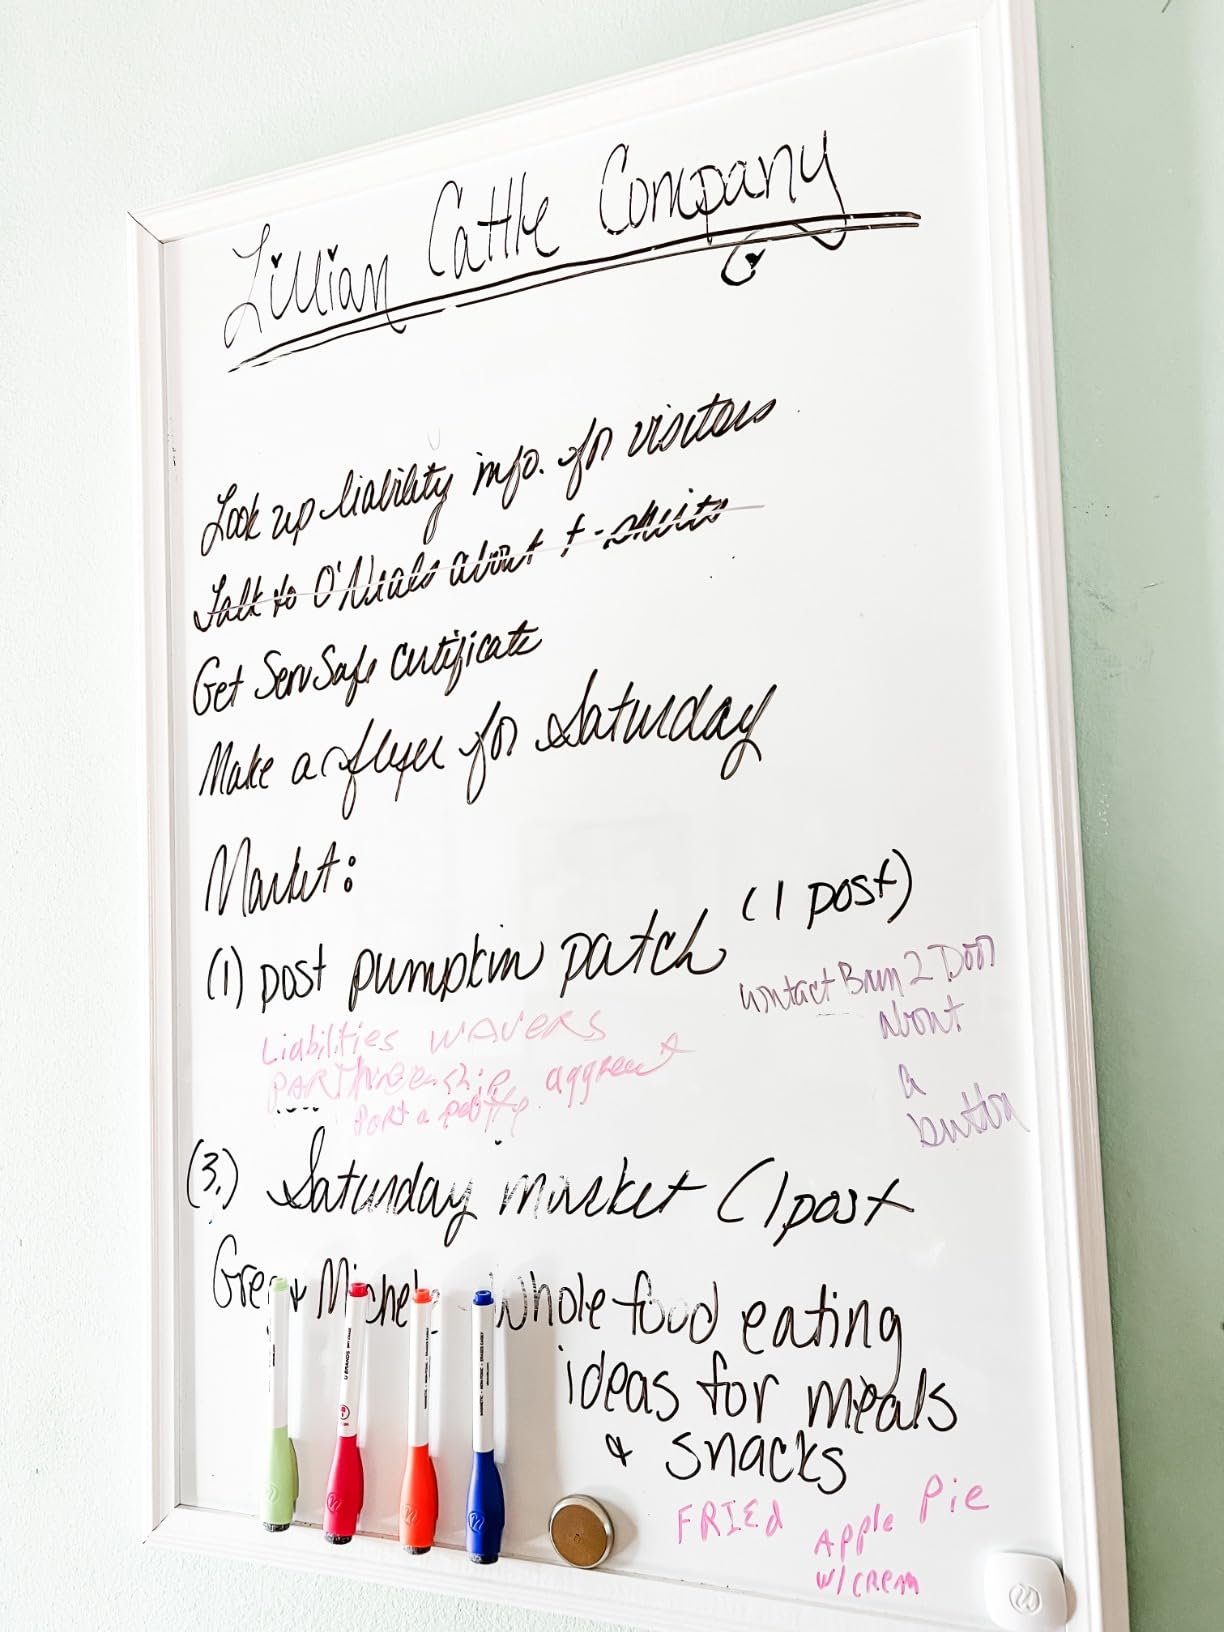 Lillian Cattle Company
Look up liability info. for visitors
Talk to O'Neals about t-shirts
Get ServSafe certificate
Make a flyer for Saturday
Market:
(1) post pumpkin patch (1 post)
contact Barn 2 Door
about
a
button
Liabilities WAVERS
Port a potty
(3.) Saturday market (1 post
Greg & Michele - Whole food eating
ideas for meals
& snacks
FRIEd Apple Pie
w/cream